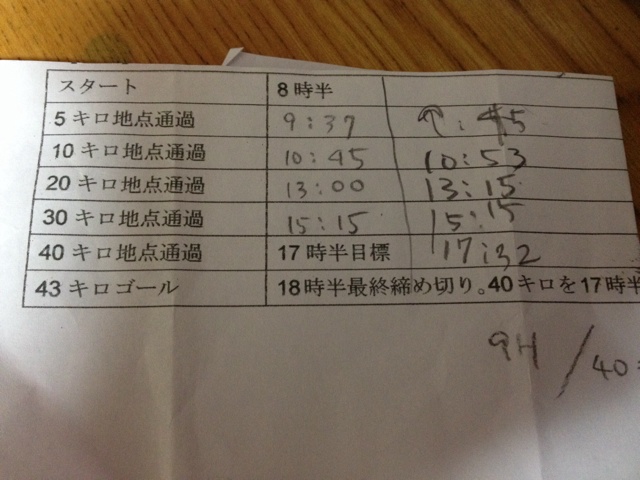 スタート 8時半
5キロ地点通過 9:37 :45
10キロ地点通過 10:45 10:53
20キロ地点通過 13:00 13:15
30キロ地点通過 15:15 15:15
40キロ地点通過 17時半目標 17:32
43キロゴール 18時半最終締め切り。40キロを17時半
9H / 40